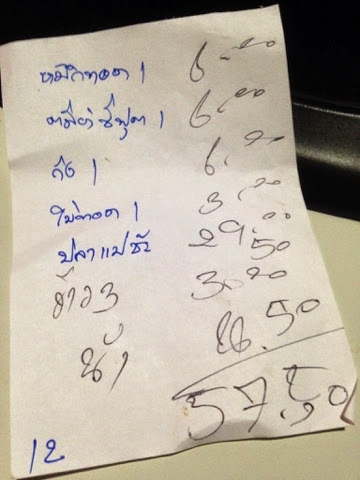 หมึกทอด 1 6.00
ต้มยำซีฟู้ด 1 6.00
1 6.00
ไข่ทอด 1 3.00
ปลาแปซิ้ว 29.00
50
ข้าว 3 3.00
น้ำ .50
57.50
12